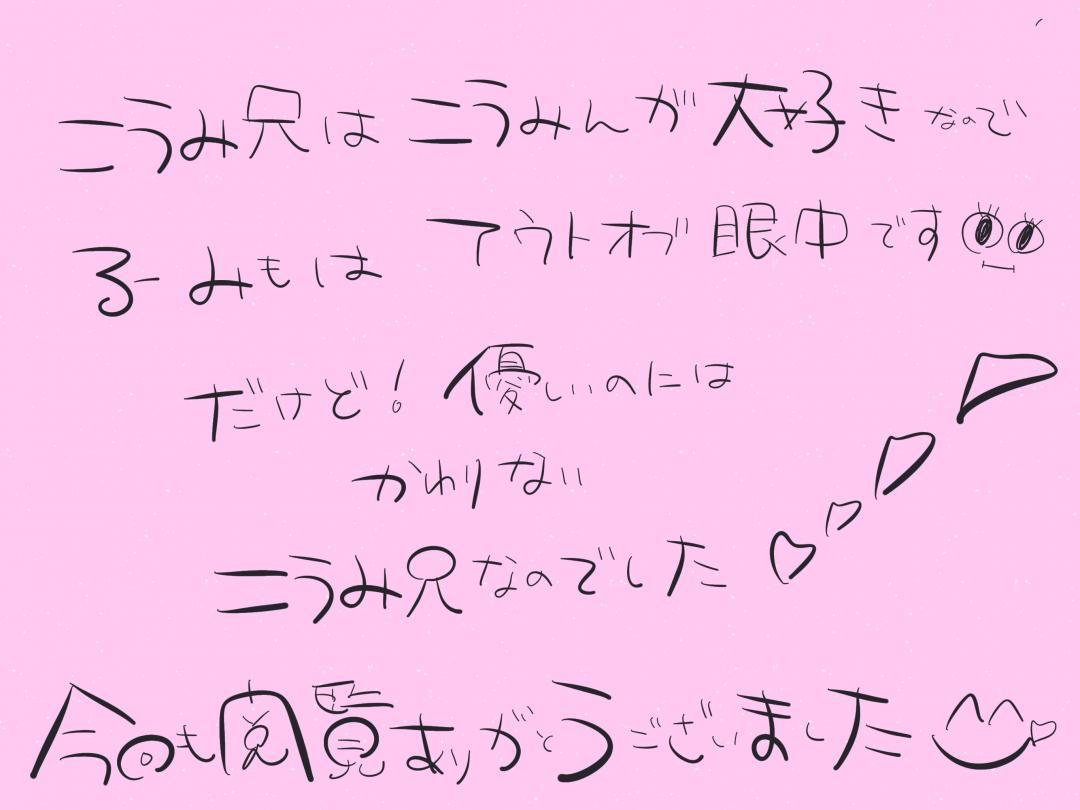 こうみ兄はこうみんが大好きなので
るーみもは アウトオブ眼中です
だけど！優しいのには
かわりない
こうみ兄なのでした
今回も閲覧ありがとうございました